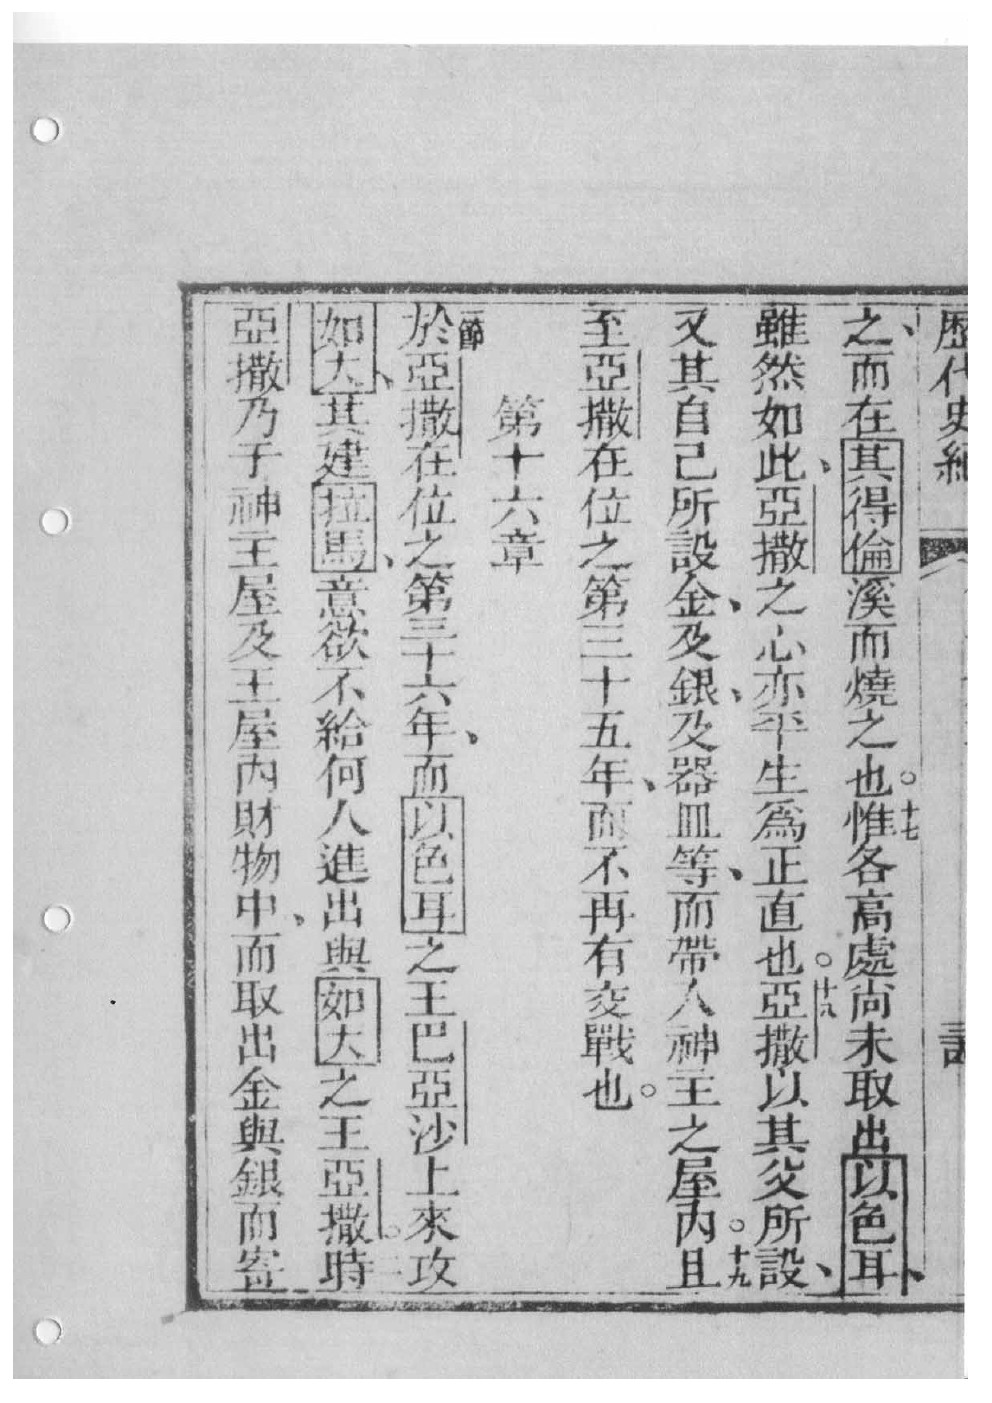 歷代史紀
之、而在其得倫溪而燒之也。十七惟各高處尚未取出以色耳、
雖然如此、亞撒之心亦平生為正直也。十八亞撒以其父所設、
又其自己所設金、及銀、及器皿等、而帶入神主之屋內。十九且
至亞撒在位之第三十五年、而不再有交戰也。
第十六章
一節於亞撒在位之第三十六年、而以色耳之王巴亞沙上來攻
如大、其建拉馬、意欲不給何人進出與如大之王亞撒。二時
亞撒乃于神主屋及王屋內財物中、而取出金與銀而寄